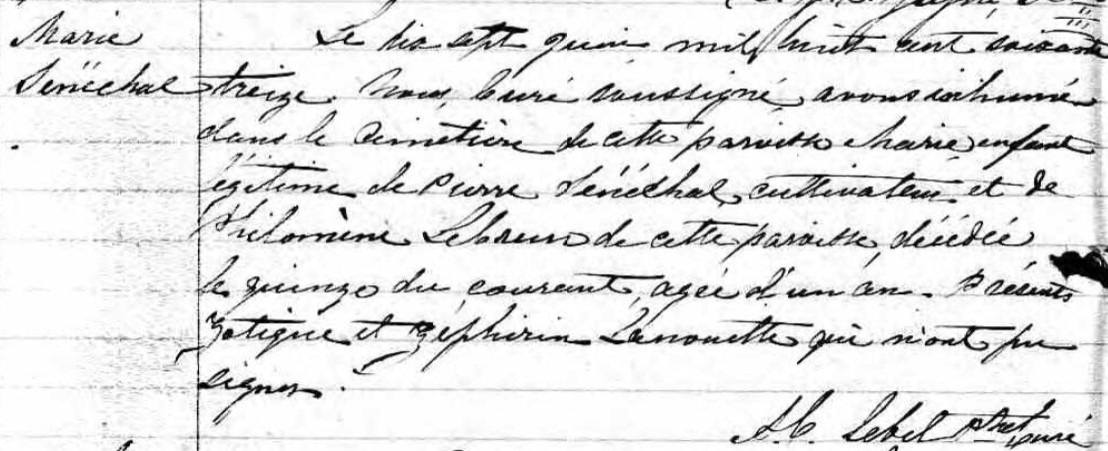 Marie
Sénéchal
Le dix sept juin mil huit cent soixante
treize, Nous, Curé soussigné, avons inhumé
dans le cimetière de cette paroisse Marie, enfant
légitime de Pierre Sénéchal, cultivateur et de
Philomène Lebrun de cette paroisse, décédée
le quinze du courant, agée d'un an. Présents
Zotique et Zéphirin Lanouette qui n'ont pu
signer.
Lebel Ptre curé